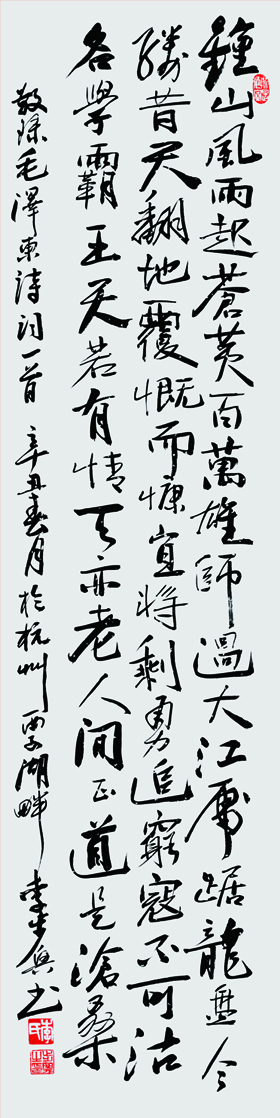 鐘山風雨起蒼黄百萬雄師過大江虎踞龍盤今
勝昔天翻地覆慨而慷宜將剩勇追窮寇不可沽
名學霸王天若有情天亦老人間正道是滄桑
敬録毛澤東詩詞一首 辛丑春月於杭州西子湖畔 李 書